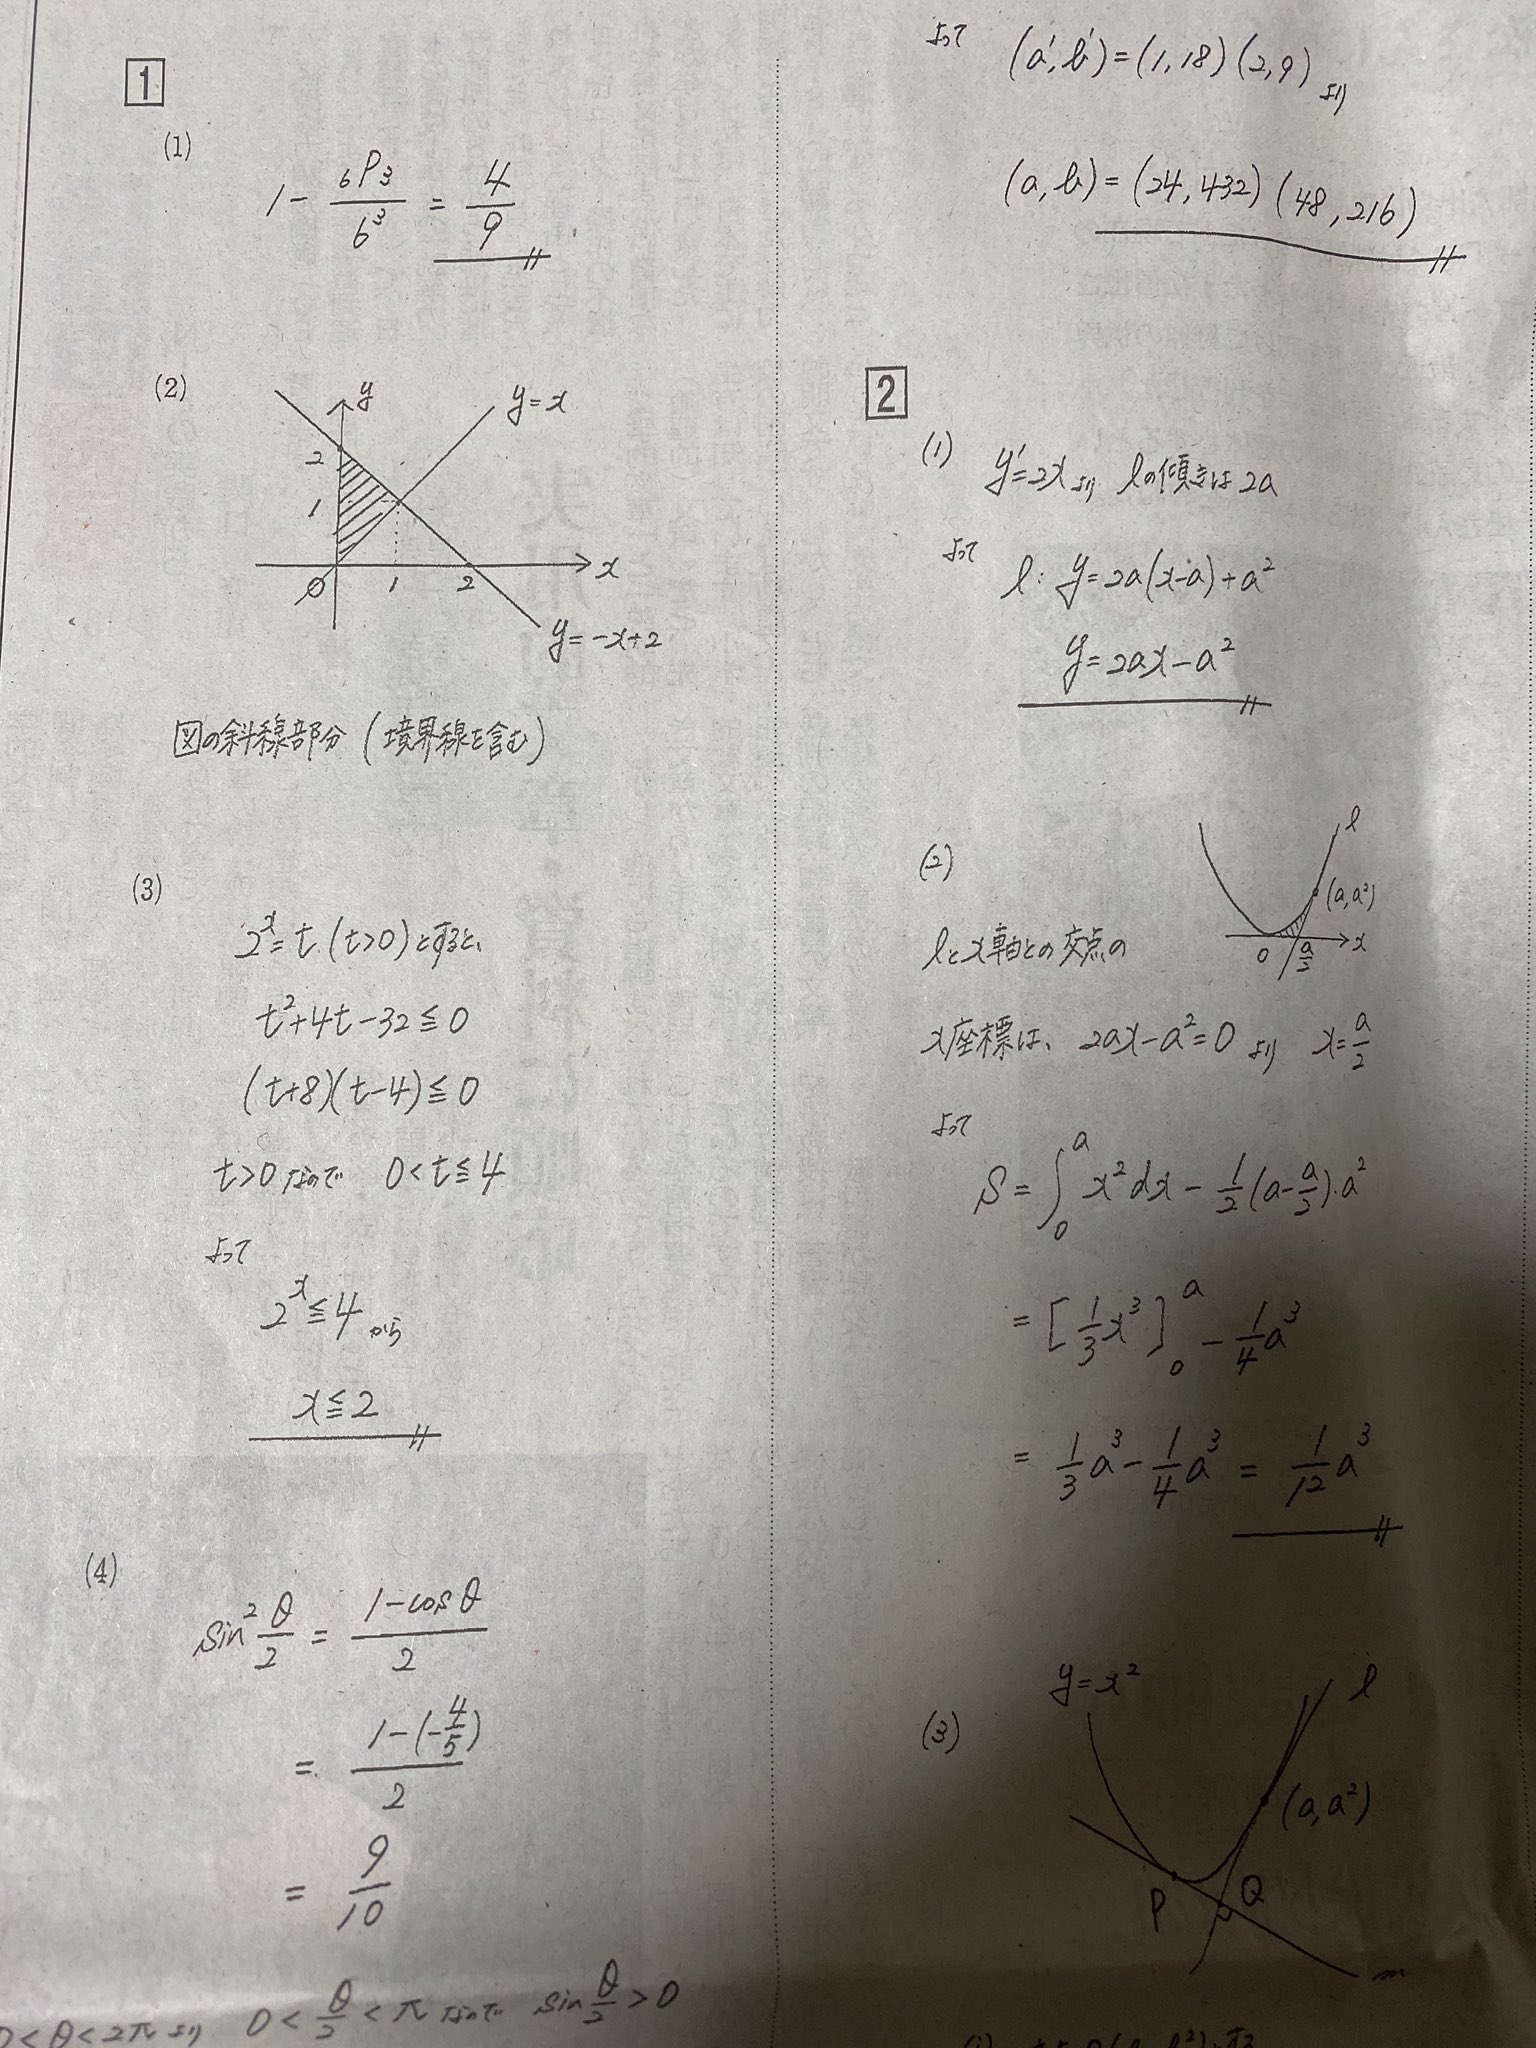 1
(1)
1 - 6P3/6^3 = 4/9
(2)
y
y=x
2
1
O 1 2 x
y=-x+2
図の斜線部分(境界線を含む)
(3)
2^x=t (t>0)とすると、
t^2+4t-32≦0
(t+8)(t-4)≦0
t>0なので 0<t≦4
よって
2^x≦4から
x≦2
(4)
sin^2 θ/2 = (1-cosθ)/2
= (1-(-4/5))/2
= 9/10
0<θ<2πより 0<θ/2<πなので sin θ/2>0
よって (a',b')=(1,18)(2,9)より
(a,b)=(24,432)(48,216)
2
(1)
y'=2xより lの傾きは2a
よって
l: y=2a(x-a)+a^2
y=2ax-a^2
(2)
l
(a,a^2)
0 a/2 x
lとx軸との交点の
x座標は、 2ax-a^2=0より x=a/2
よって
S=∫_0^a x^2dx-1/2(a-a/2)・a^2
=[1/3x^3]_0^a-1/4a^3
=1/3a^3-1/4a^3=1/12a^3
(3)
y=x^2
l
(a,a^2)
P Q
m